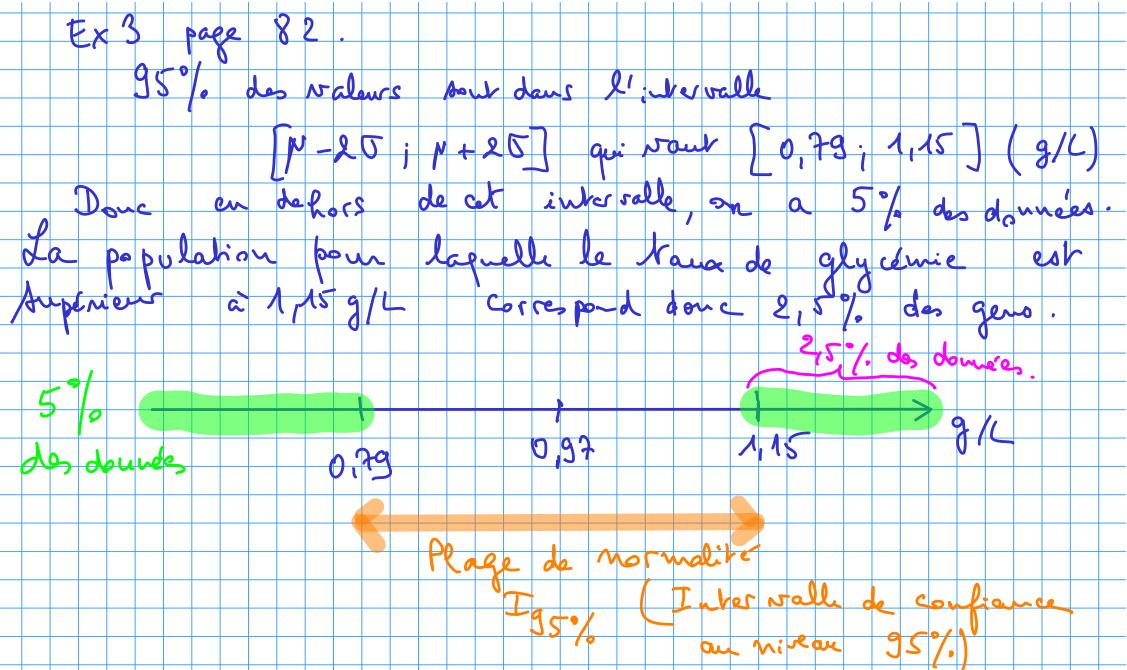 Ex 3 page 82.
95% des valeurs sont dans l'intervalle
[μ-2σ ; μ+2σ] qui vaut [0,79 ; 1,15] (g/L)
Donc en dehors de cet intervalle, on a 5% des données.
La population pour laquelle le taux de glycémie est
supérieur à 1,15 g/L correspond donc 2,5% des gens.
2,5% des données.
5%
des données
0,79
0,97
1,15
g/L
Plage de normalité
I95% (Intervalle de confiance
au niveau 95%)